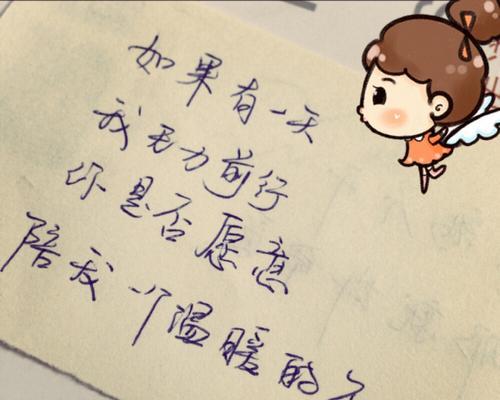 如果有一天
我无力前行
你是否愿意
陪我一个温暖的